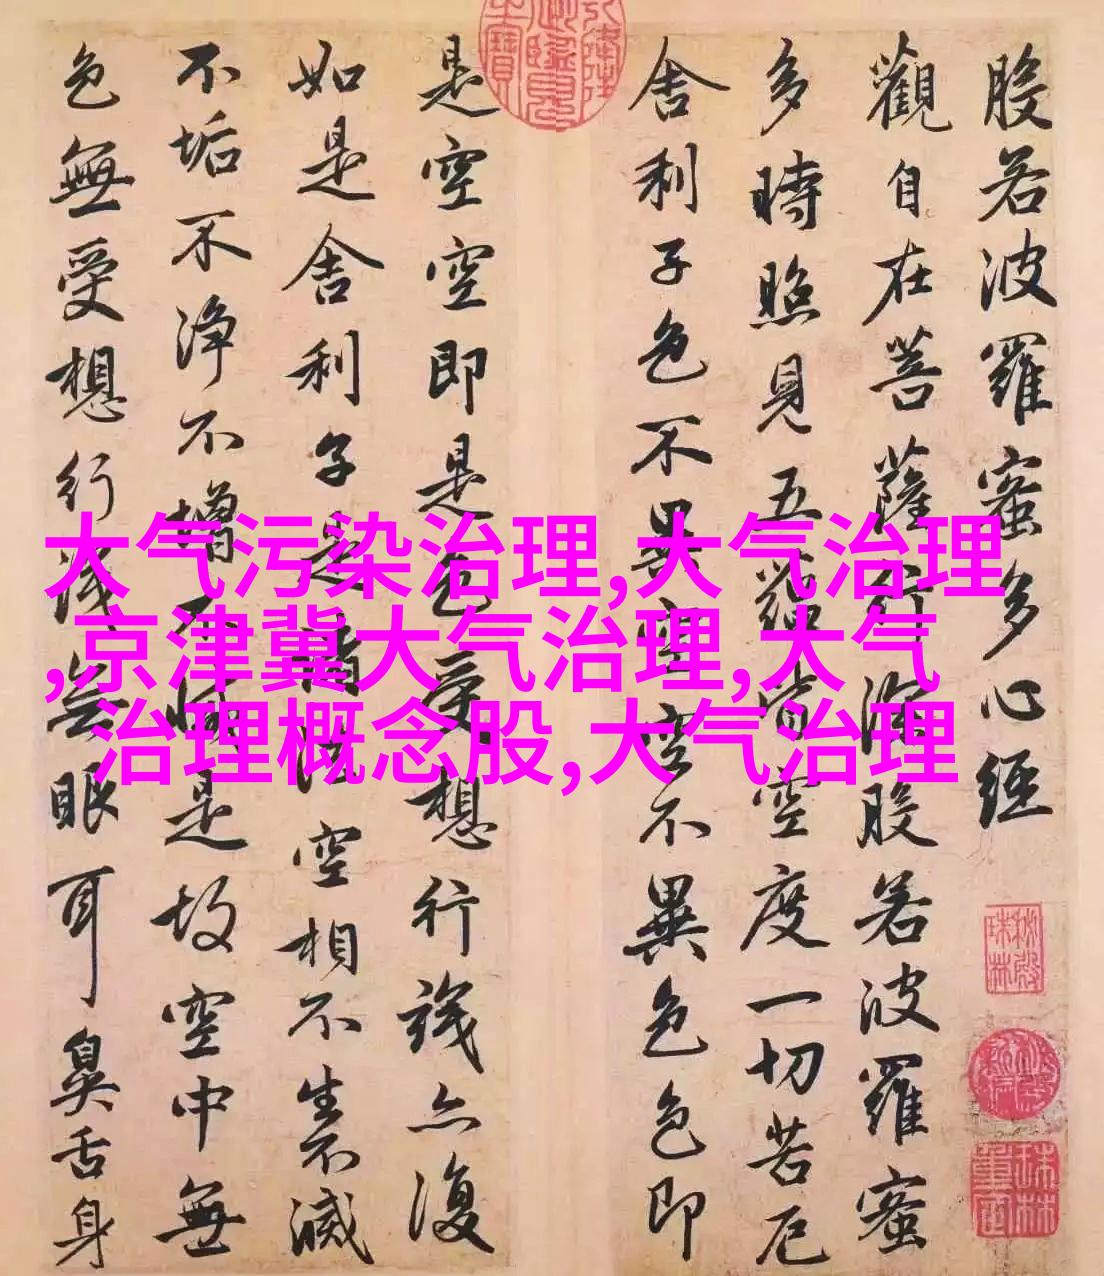 般若波羅蜜多心經
觀自在菩薩行深般若波羅蜜
多時照見五蘊皆空度一切苦厄
舍利子色不異空空不異色色即
是空空即是色受想行識亦復
如是舍利子是諸法空相不生不滅
不垢不淨不增不減是故空中無
色無受想行識無眼耳鼻舌身
大气污染治理,大气治理
,京津冀大气治理,大气
治理概念股,大气治理
秘殿
珠林